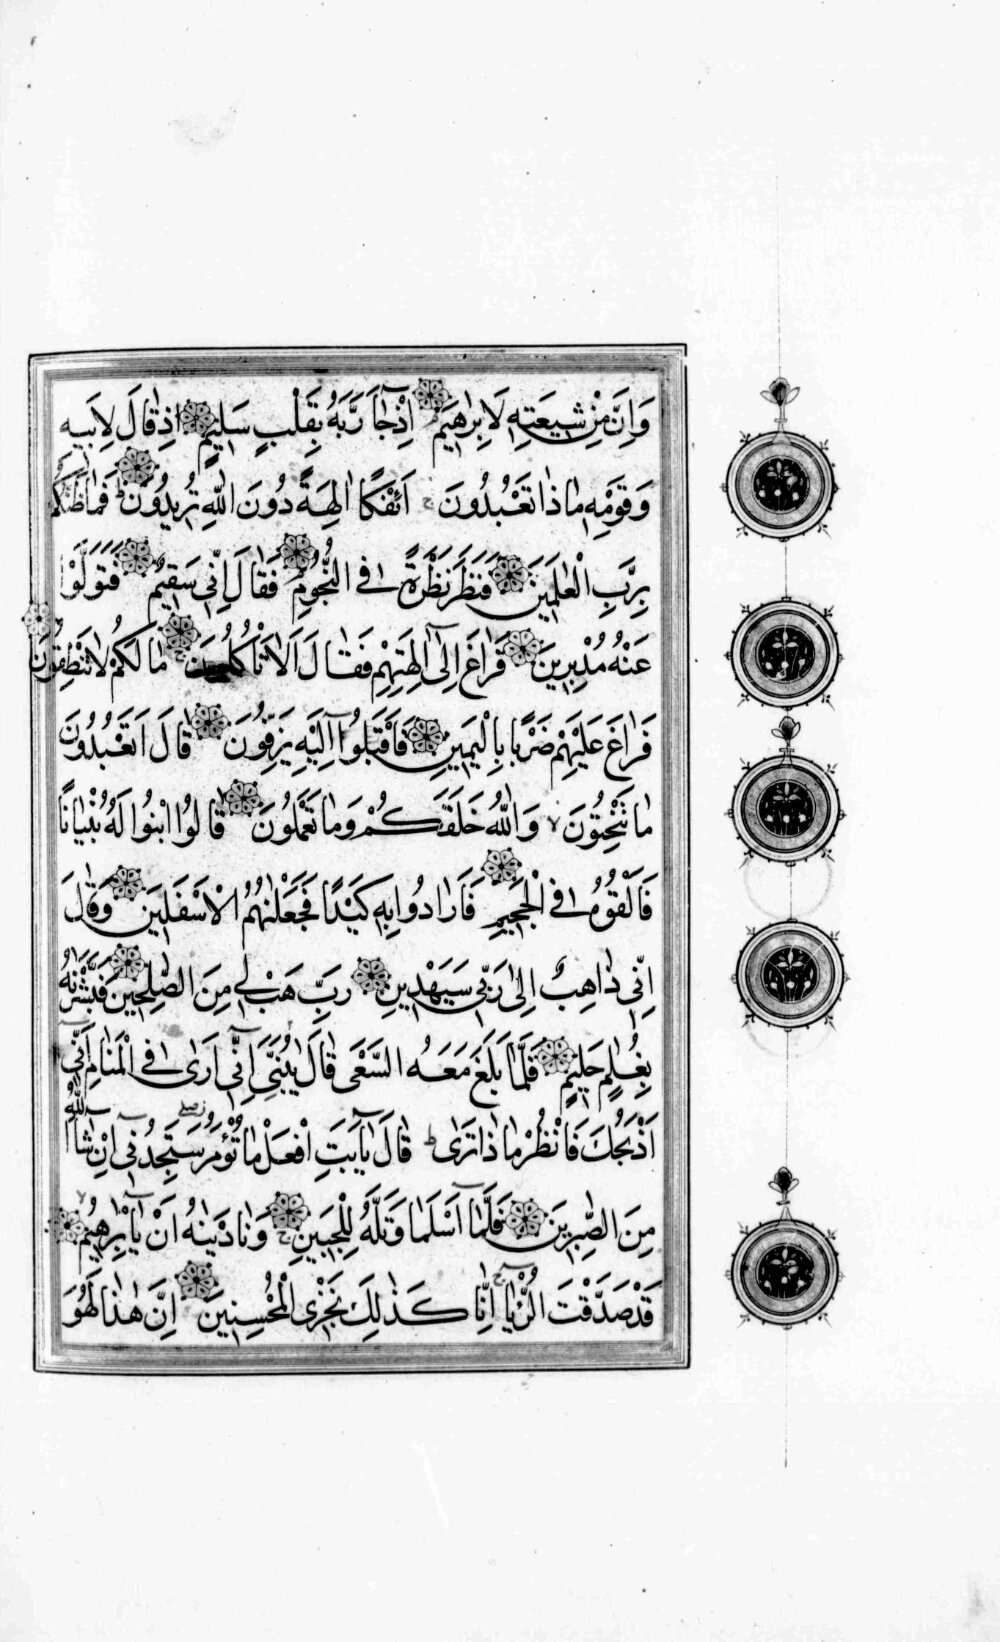 وَاِنَّ مِنْ شِيعَتِهِ لَاِبْرٰهِيمَ اِذْ جَآءَ رَبَّهُ بِقَلْبٍ سَلِيمٍ اِذْ قَالَ لِاَبِيهِ
وَقَوْمِهِ مَاذَا تَعْبُدُونَ ج اَئِفْكًا اٰلِهَةً دُونَ اللّٰهِ تُرِيدُونَ ط فَمَا ظَنُّكُمْ
بِرَبِّ الْعٰالَمِينَ فَنَظَرَ نَظْرَةً فِى النُّجُومِ فَقَالَ اِنِّى سَقِيمٌ فَتَوَلَّوْا
عَنْهُ مُدْبِرِينَ فَرَاغَ اِلٰٓى اٰلِهَتِهِمْ فَقَالَ اَلَا تَأْكُلُونَ ج مَا لَكُمْ لَا تَنْطِقُونَ
فَرَاغَ عَلَيْهِمْ ضَرْبًا بِالْيَمِينِ فَاَقْبَلُوٓا اِلَيْهِ يَزِفُّونَ قَالَ اَتَعْبُدُونَ
مَا تَنْحِتُونَ لا وَاللّٰهُ خَلَقَكُمْ وَمَا تَعْمَلُونَ قَالُوا ابْنُوا لَهُ بُنْيَانًا
فَاَلْقُوهُ فِى الْجَحِيمِ فَاَرَادُوا بِهِ كَيْدًا فَجَعَلْنٰهُمُ الْاَسْفَلِينَ وَقَالَ
اِنِّى ذَاهِبٌ اِلٰى رَبِّى سَيَهْدِينِ رَبِّ هَبْ لِى مِنَ الصّٰلِحِينَ فَبَشَّرْنٰهُ
بِغُلٰمٍ حَلِيمٍ فَلَمَّا بَلَغَ مَعَهُ السَّعْىَ قَالَ يٰبُنَىَّ اِنِّٓى اَرٰى فِى الْمَنَامِ اَنِّٓى
اَذْبَحُكَ فَانْظُرْ مَاذَا تَرٰى ط قَالَ يَآ اَبَتِ افْعَلْ مَا تُؤْمَرُ سَتَجِدُنِٓى اِنْ شَآءَ اللّٰهُ
مِنَ الصّٰبِرِينَ فَلَمَّآ اَسْلَمَا وَتَلَّهُ لِلْجَبِينِ ج وَنَادَيْنٰهُ اَنْ يَآ اِبْرٰهِيمُ لا
قَدْ صَدَّقْتَ الرُّءْيَا ج اِنَّا كَذٰلِكَ نَجْزِى الْمُحْسِنِينَ اِنَّ هٰذَا لَهُوَ